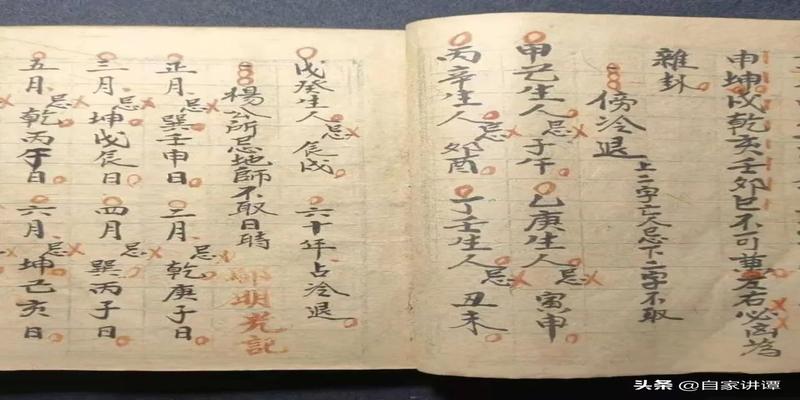 申坤戌乾亥壬卯巳不可黄左右必凶為
雜卦
傍冷退 上二字亡人忌下二字不取
甲己生人忌子午 乙庚生人忌寅申
丙辛生人忌卯酉 丁壬生人忌丑未
戊癸生人忌辰戌 六十年占冷退
楊公所忌地師不取日時 明光記
正月忌巽壬申日 二月忌乾庚子日
三月忌坤戊辰日 四月忌巽丙子日
五月忌乾丙午日 六月忌坤己亥日
头条 @自家讲谭